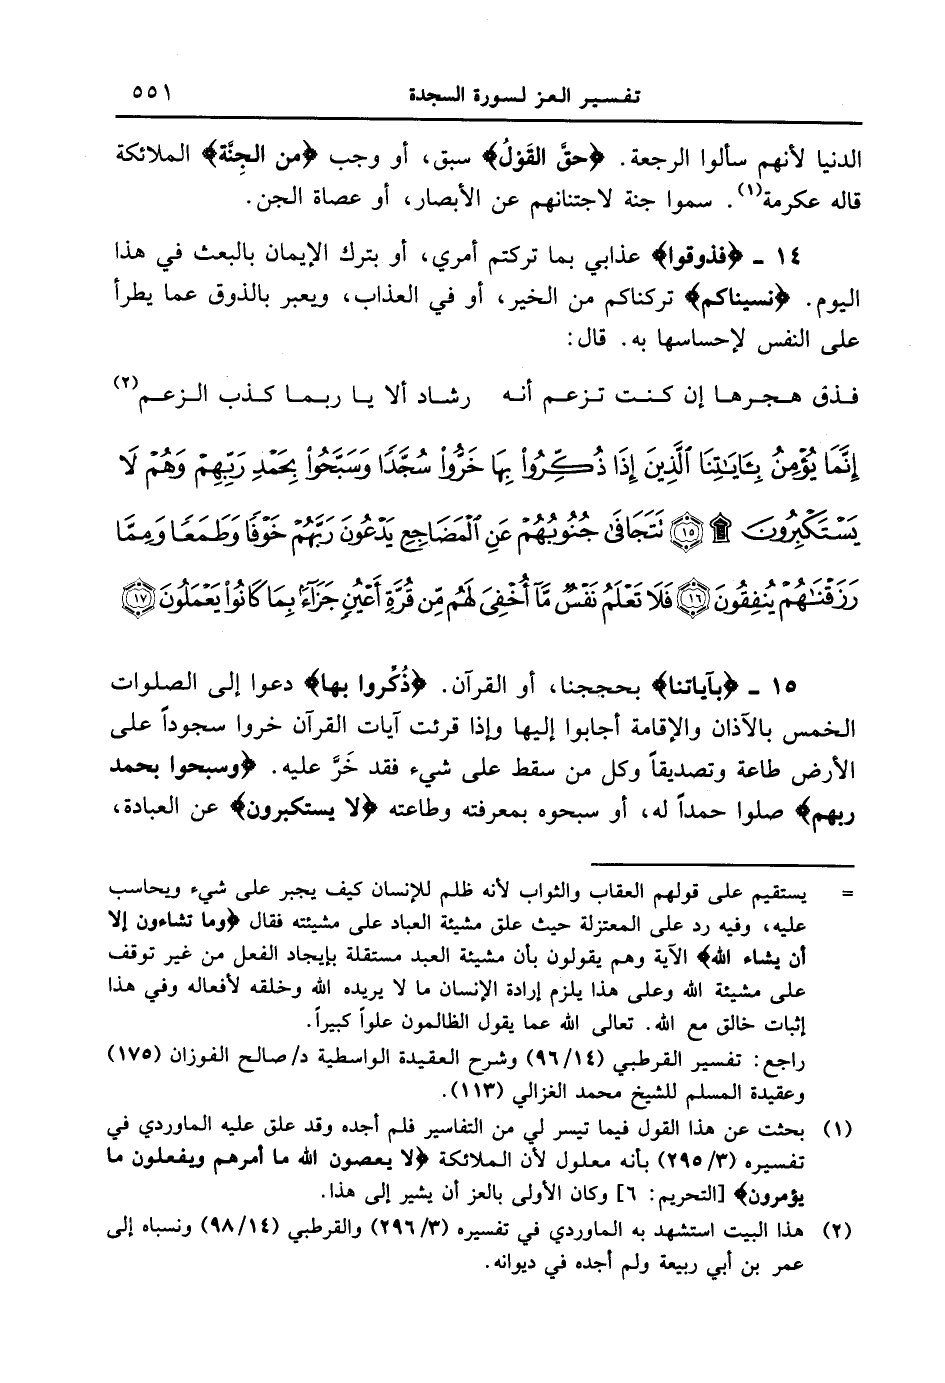 تفسير العز لسورة السجدة ٥٥١
الدنيا لأنهم سألوا الرجعة. ﴿حقَّ القَوْلُ﴾ سبق، أو وجب ﴿من الجِنَّة﴾ الملائكة
قاله عكرمة(١). سموا جنة لاجتنانهم عن الأبصار، أو عصاة الجن.
١٤ ـ ﴿فذوقوا﴾ عذابي بما تركتم أمري، أو بترك الإيمان بالبعث في هذا
اليوم. ﴿نسيناكم﴾ تركناكم من الخير، أو في العذاب، ويعبر بالذوق عما يطرأ
على النفس لإحساسها به. قال:
فذق هجرها إن كنت تزعم أنه رشاد ألا يا ربما كذب الزعم(٢)
إِنَّمَا يُؤْمِنُ بِـَٔايَـٰتِنَا ٱلَّذِينَ إِذَا ذُكِّرُوا۟ بِهَا خَرُّوا۟ سُجَّدًا وَسَبَّحُوا۟ بِحَمْدِ رَبِّهِمْ وَهُمْ لَا
يَسْتَكْبِرُونَ ۩ ﴿١٥﴾ تَتَجَافَىٰ جُنُوبُهُمْ عَنِ ٱلْمَضَاجِعِ يَدْعُونَ رَبَّهُمْ خَوْفًا وَطَمَعًا وَمِمَّا
رَزَقْنَـٰهُمْ يُنفِقُونَ ﴿١٦﴾ فَلَا تَعْلَمُ نَفْسٌ مَّآ أُخْفِىَ لَهُم مِّن قُرَّةِ أَعْيُنٍ جَزَآءًۢ بِمَا كَانُوا۟ يَعْمَلُونَ ﴿١٧﴾
١٥ ـ ﴿بآياتنا﴾ بحججنا، أو القرآن. ﴿ذُكِّروا بها﴾ دعوا إلى الصلوات
الخمس بالآذان والإقامة أجابوا إليها وإذا قرئت آيات القرآن خروا سجوداً على
الأرض طاعة وتصديقاً وكل من سقط على شيء فقد خَرَّ عليه. ﴿وسبحوا بحمد
ربهم﴾ صلوا حمداً له، أو سبحوه بمعرفته وطاعته ﴿لا يستكبرون﴾ عن العبادة،
= يستقيم على قولهم العقاب والثواب لأنه ظلم للإنسان كيف يجبر على شيء ويحاسب
عليه، وفيه رد على المعتزلة حيث علق مشيئة العباد على مشيئته فقال ﴿وما تشاءون إلا
أن يشاء الله﴾ الآية وهم يقولون بأن مشيئة العبد مستقلة بإيجاد الفعل من غير توقف
على مشيئة الله وعلى هذا يلزم إرادة الإنسان ما لا يريده الله وخلقه لأفعاله وفي هذا
إثبات خالق مع الله. تعالى الله عما يقول الظالمون علواً كبيراً.
راجع: تفسير القرطبي (٩٦/١٤) وشرح العقيدة الواسطية د/صالح الفوزان (١٧٥)
وعقيدة المسلم للشيخ محمد الغزالي (١١٣).
(١) بحثت عن هذا القول فيما تيسر لي من التفاسير فلم أجده وقد علق عليه الماوردي في
تفسيره (٢٩٥/٣) بأنه معلول لأن الملائكة ﴿لا يعصون الله ما أمرهم ويفعلون ما
يؤمرون﴾ [التحريم: ٦] وكان الأولى بالعز أن يشير إلى هذا.
(٢) هذا البيت استشهد به الماوردي في تفسيره (٢٩٦/٣) والقرطبي (٩٨/١٤) ونسباه إلى
عمر بن أبي ربيعة ولم أجده في ديوانه.